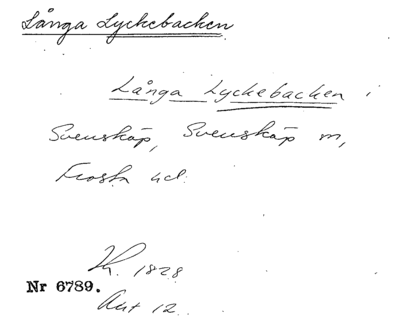 Långa Lyckebacken
Långa Lyckebacken i
Svenskåp, Svenskåp m,
Frosta hd.
Th. 1828
Nr 6789.
Akt 12.